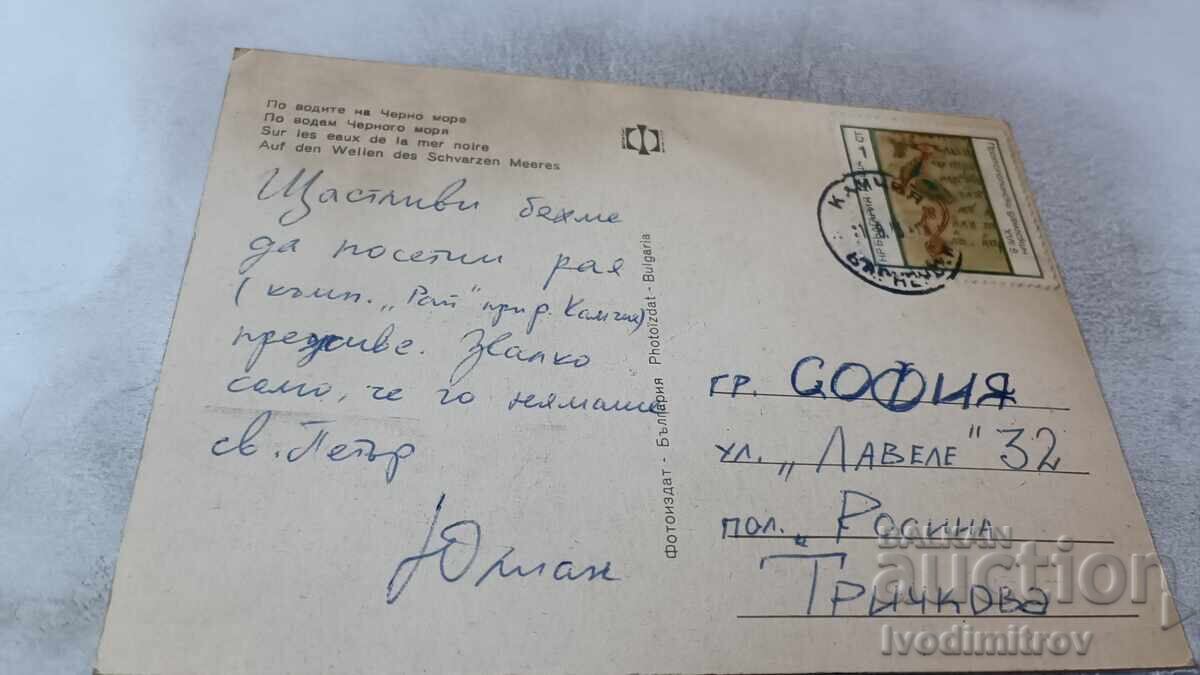 По водите на Черно море
По водам Черного моря
Sur les eaux de la mer noire
Auf den Wellen des Schvarzen Meeres
Щастливи бяхме
да посетим рая
(къмп. „Рай" при р. Камчия)
преживе. Жалко
само, че го нямаше
св. Петър
Юлиан
Фотоиздат - България Photoizdat - Bulgaria
НР България
1 ст
гр. СОФИЯ
ул. „ЛАВЕЛЕ" 32
пол. „РОСИНА
ТРИЧКОВА
BALKAN
auction
Ivodimitrov